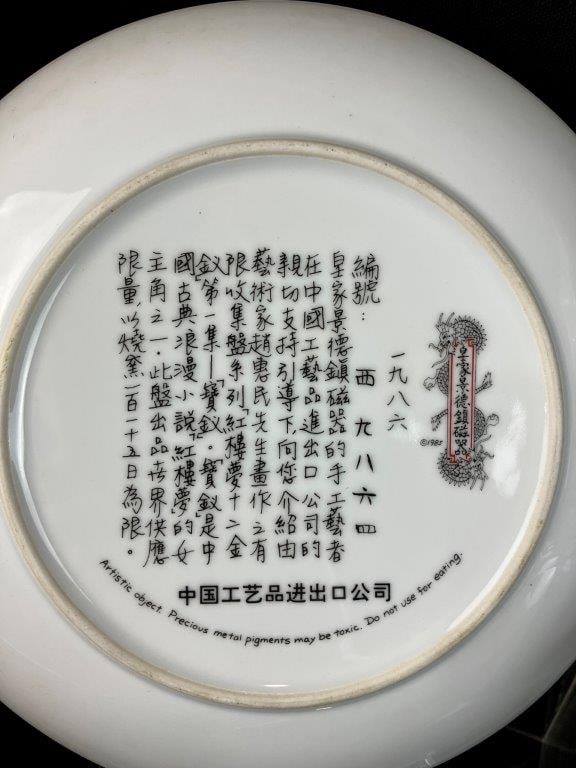 皇家景德鎮磁器
©1985
一九八六
編號: 西九八六四
皇家景德鎮磁器的手工藝者
在中國工藝品進出口公司的
親切支持引導下向您介紹由
藝術家趙惠民先生畫作之有
限收集盤系列「紅樓夢十二金
釵」第一集—「寶釵」。寶釵是中
國古典浪漫小說「紅樓夢」的女
主角之一。此盤出品世界供應
限量以燒窯一百一十五日為限。
中国工艺品进出口公司
Artistic object. Precious metal pigments may be toxic. Do not use for eating.